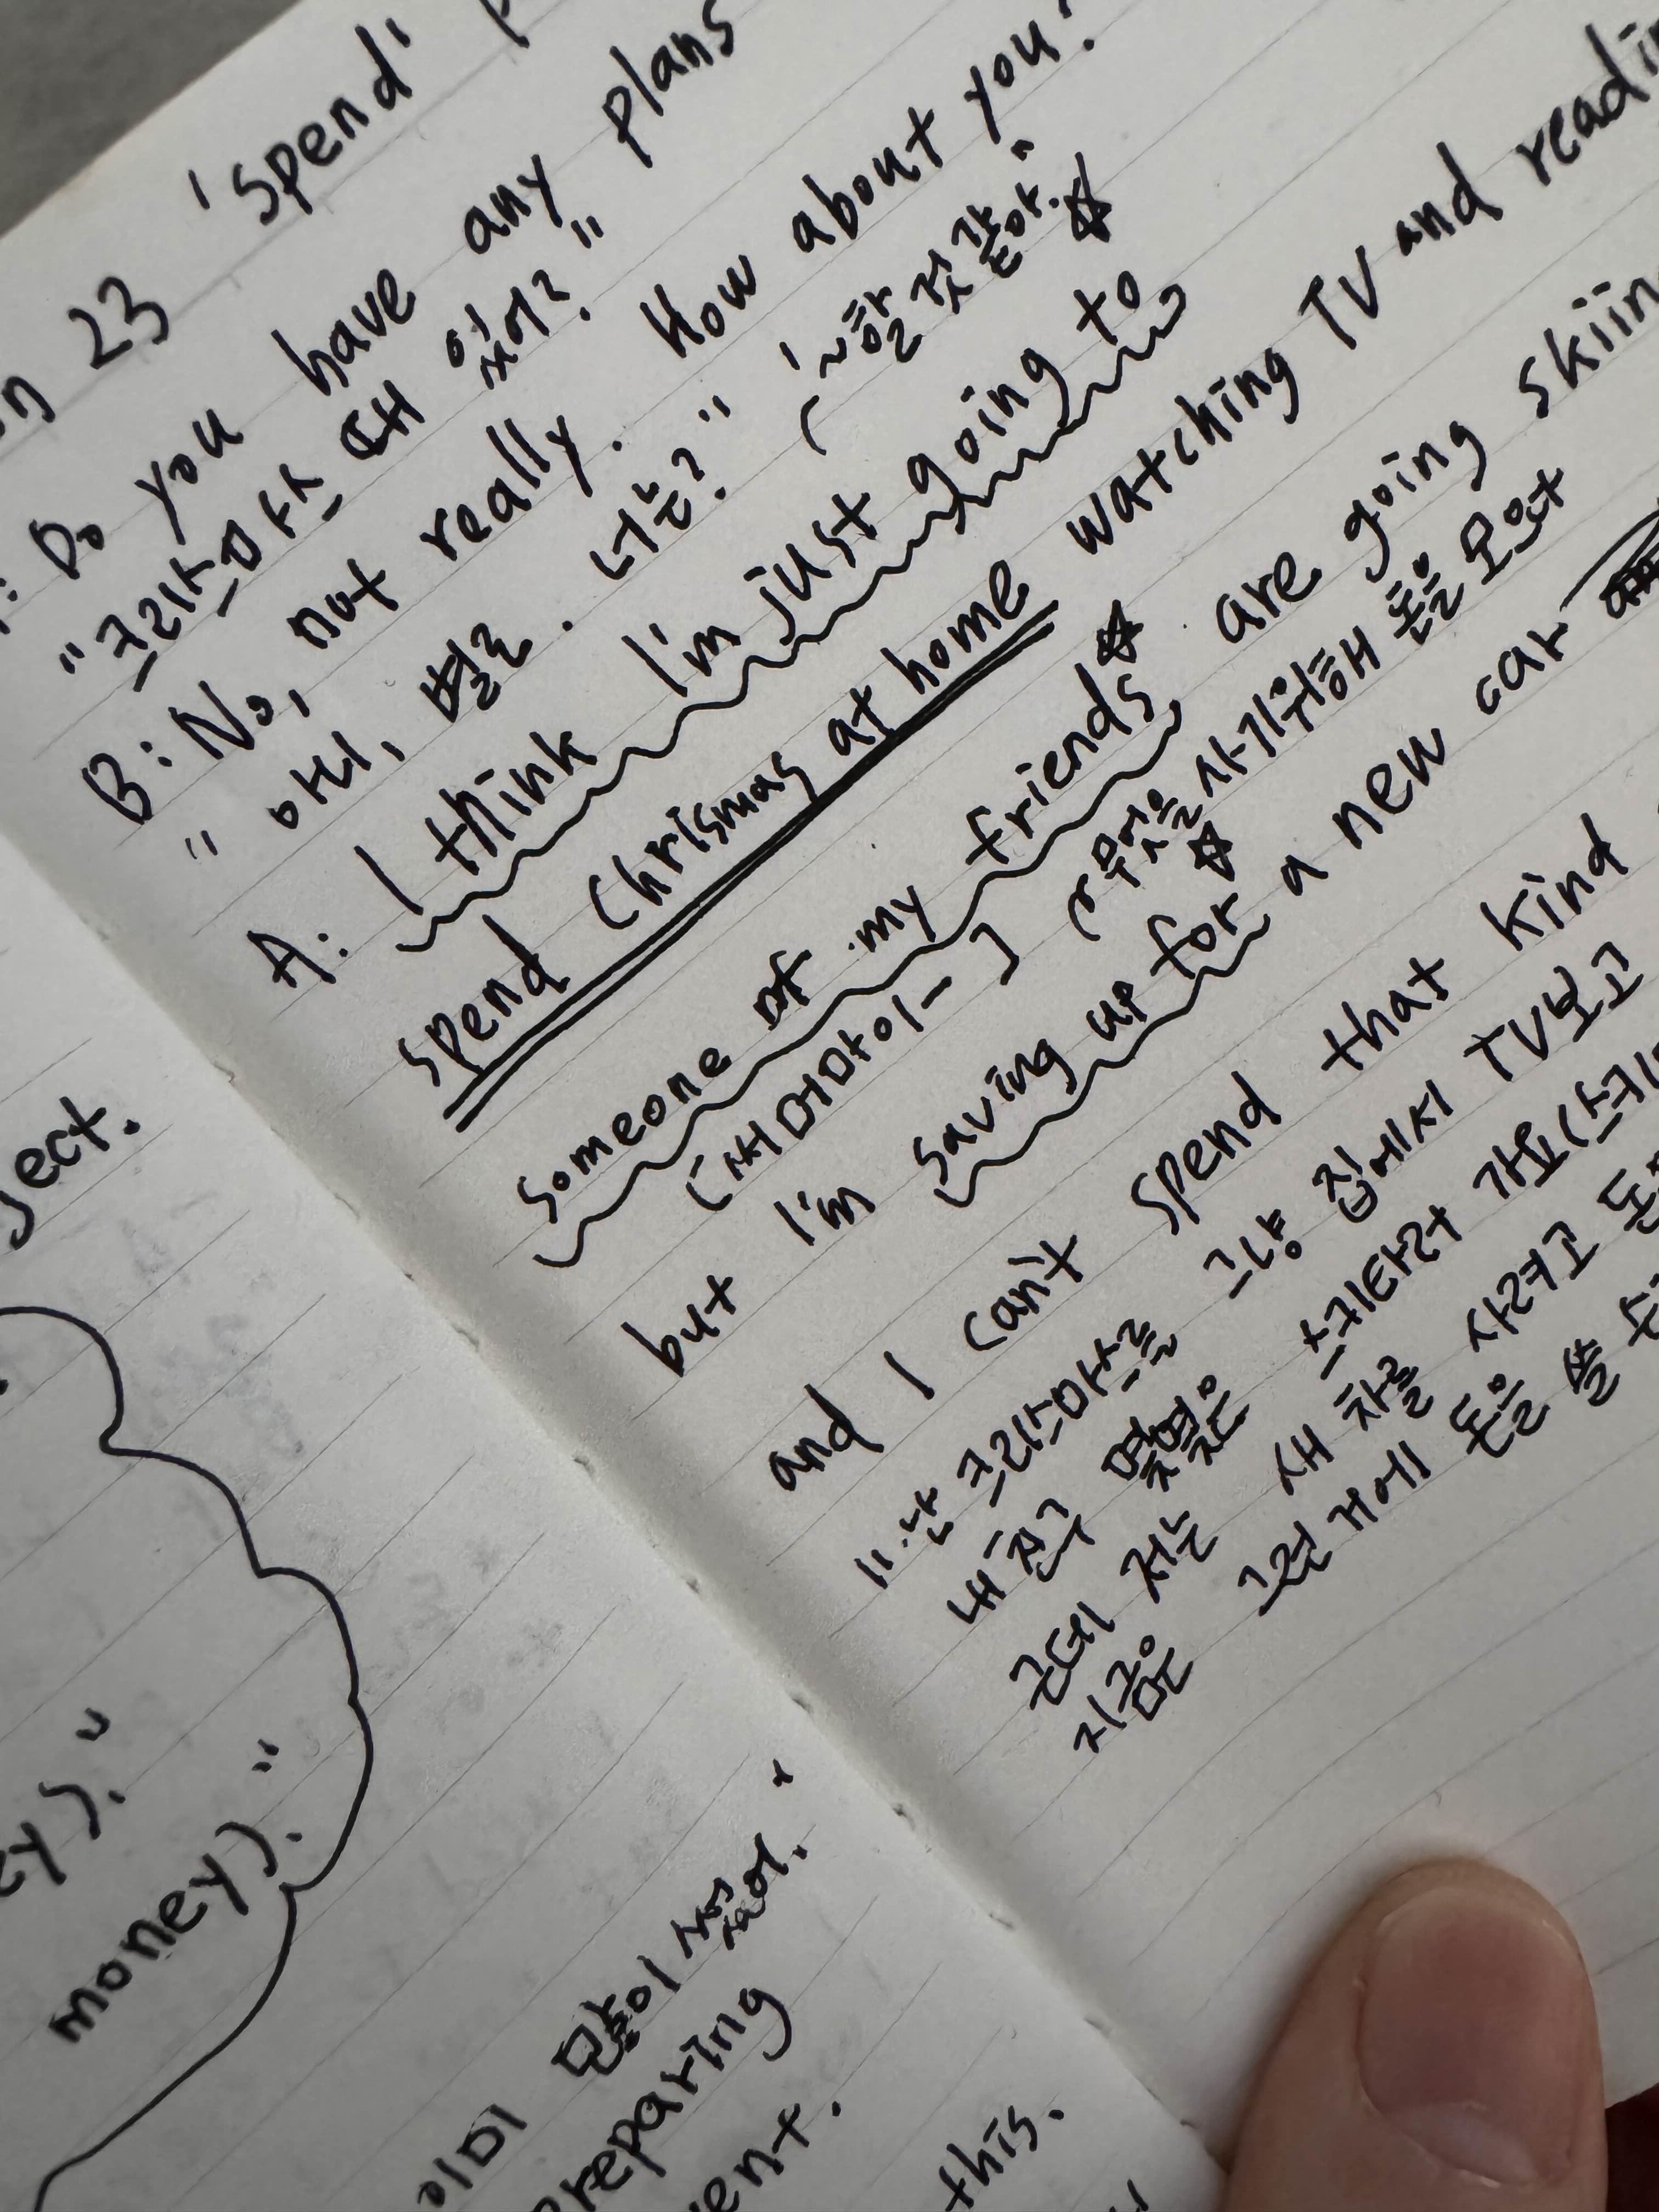 23 'spend'
Do you have any plans
"크리스마스 때 있어?"
B: No, not really. How about you?
"아니, 별로. 너는?" ('~할 것 같아.' ☆
A: I think I'm just going to
spend Chrismas at home watching TV and
someone of my friends ☆ are going
(써머마이~] (무엇을 사기위해 돈을 모으다
but I'm saving up for ☆ a new car
and I can't spend that kind
"난 크리스마스를 그냥 집에서 TV보고
내 친구 몇몇은 스키타러 가요
근데 저는 새 차를 사려고
지금은 그런 거에 돈을 쓸
money)."
이미 많이 썼어."
this.